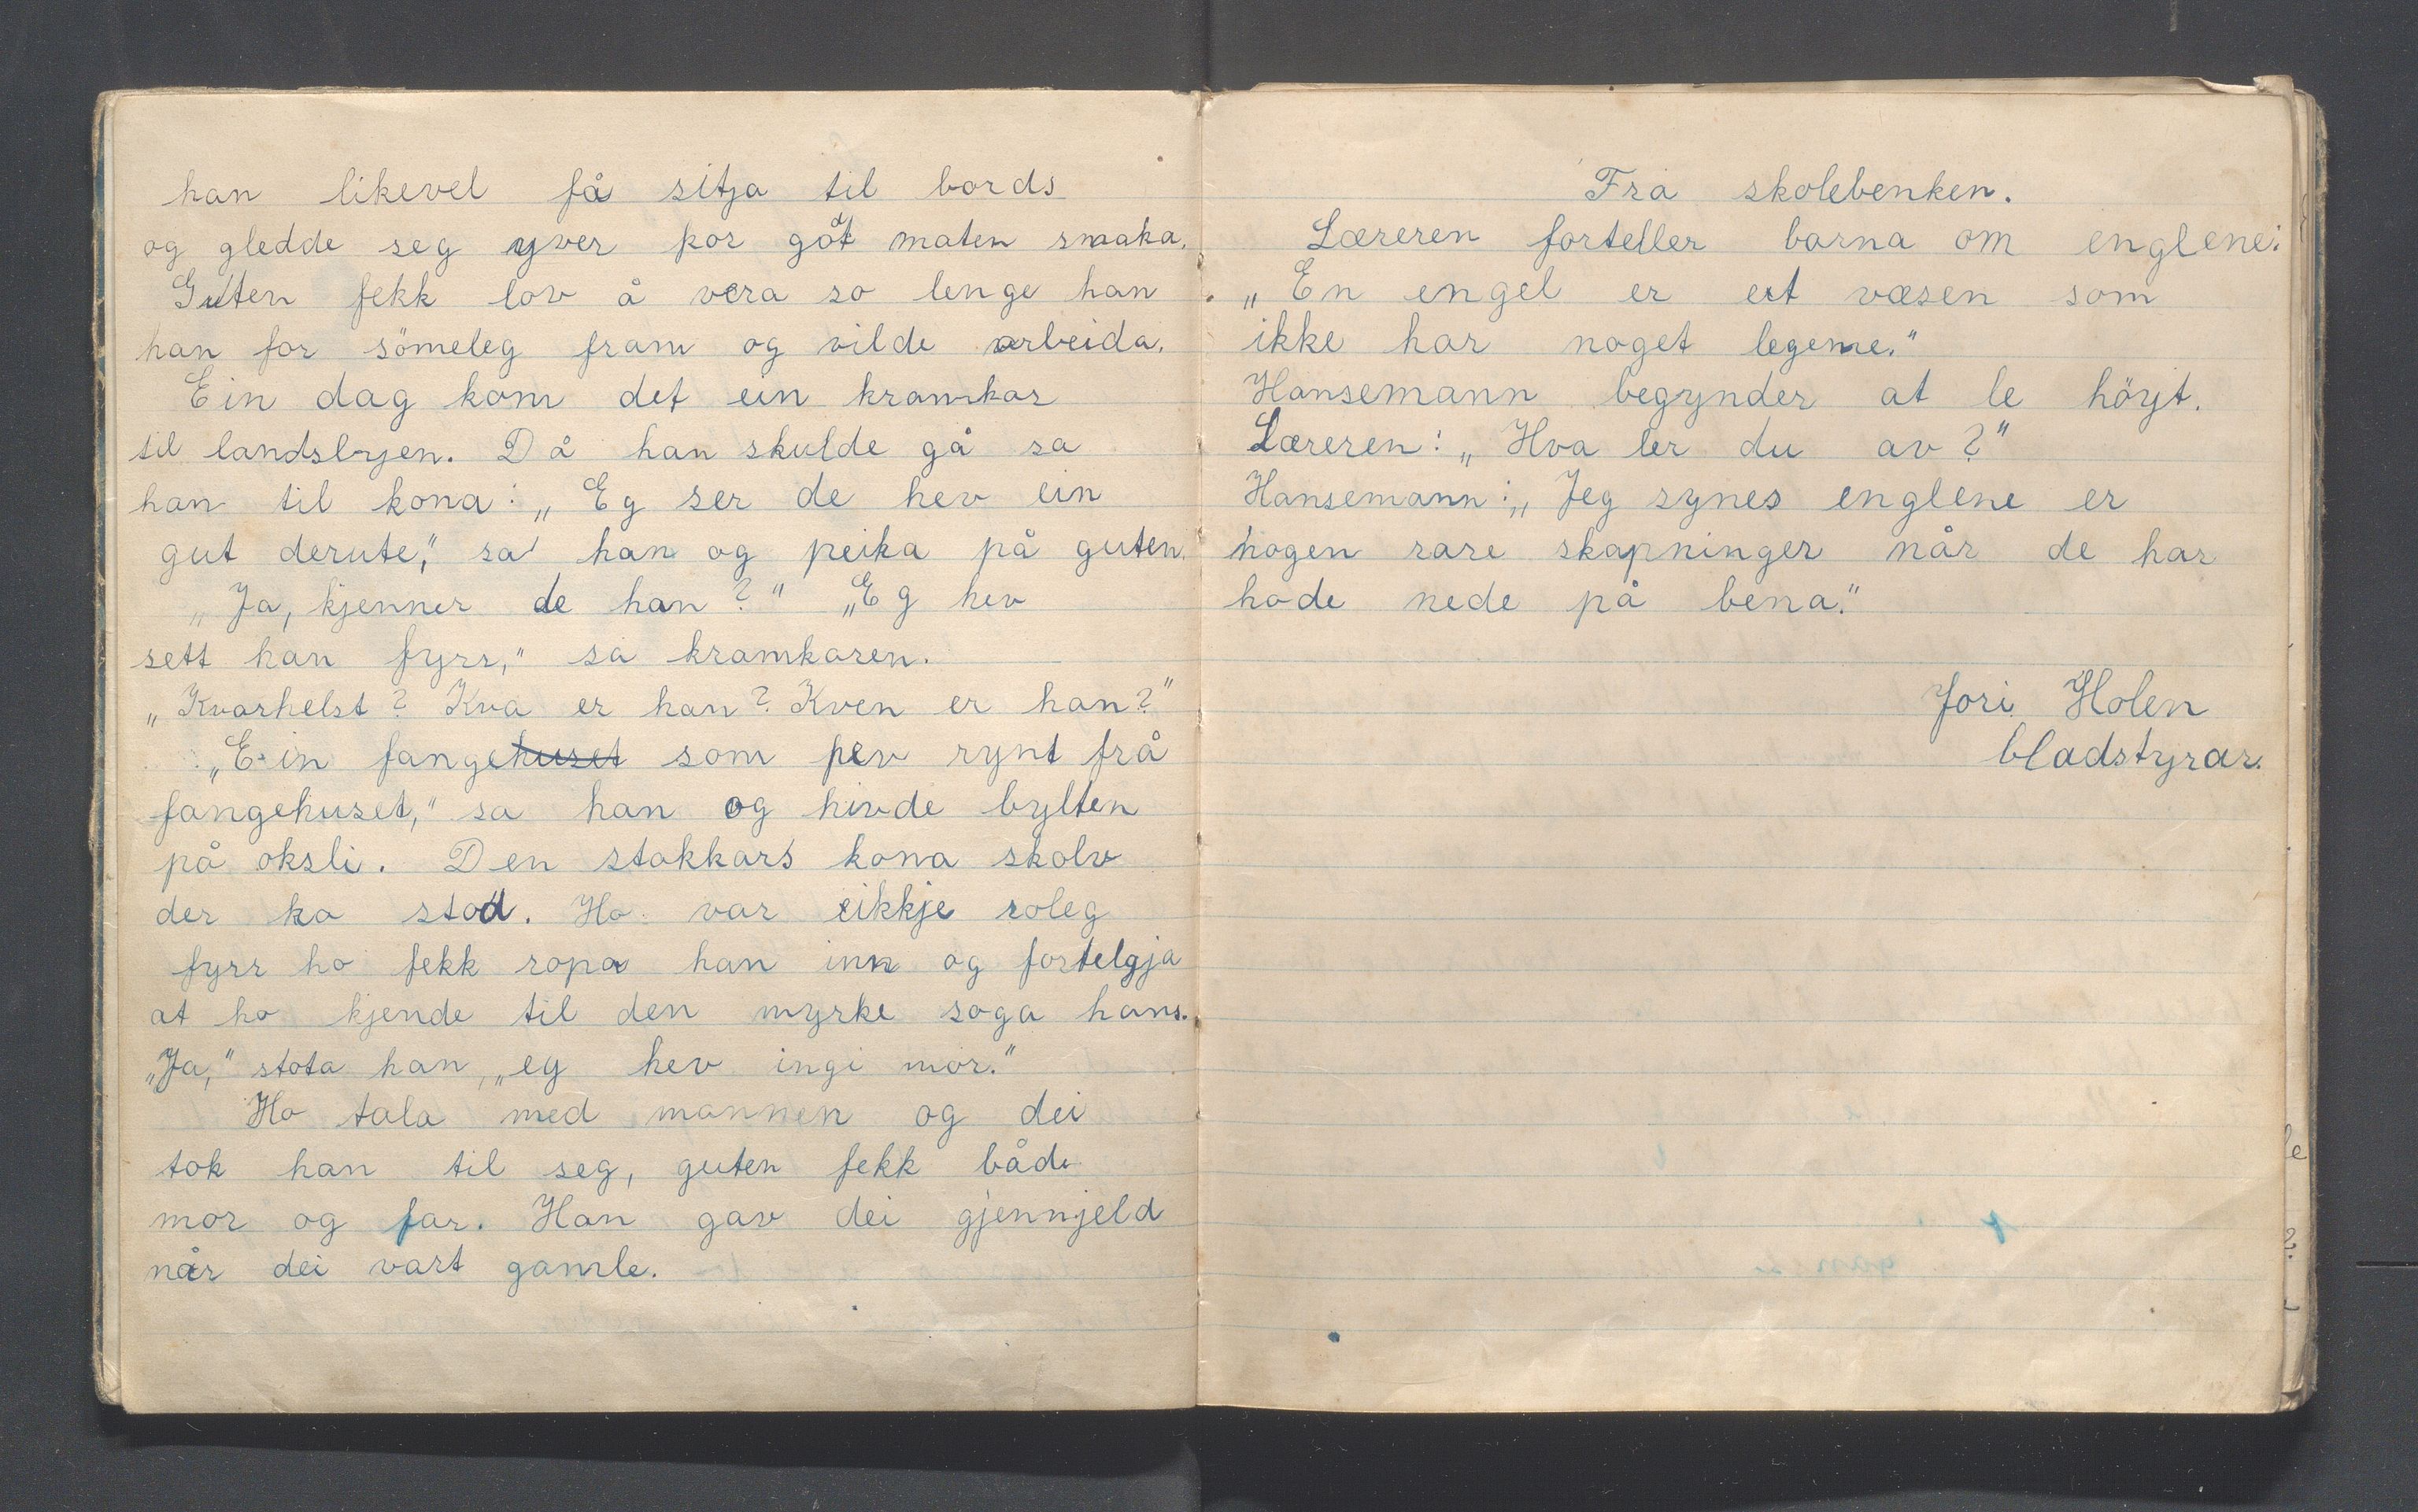 han likevel få sitja til bords
og gledde seg yver kor gödt maten smaka.
Guten fekk lov å vera so lenge han
han for sömeleg fram og vilde arbeida.
Ein dag kom det ein kramkar
til landsbyen. Då han skulde gå sa
han til kona: „Eg ser de hev ein
gut derute," sa han og peika på guten.
„Ja, kjenner de han?" „Eg hev
sett han fyrr," sa kramkaren.
„Kvarhelst? Kva er han? Kven er han?"
„Ein fangehuset som hev rynt frå
fangehuset," sa han og hivde bylten
på oksli. Den stakkars kona skolv
der ho stod. Ho var eikkje roleg
fyrr ho fekk ropa han inn og fortelgja
at ho kjende til den myrke soga hans.
„Ja," stota han, „eg hev ingi mor."
Ho tala med mannen og dei
tok han til seg, guten fekk både
mor og far. Han gav dei gjennjeld
når dei vart gamle.
Fra skolebenken.
Læreren forteller barna om englene:
„En engel er et væsen som
ikke har noget legeme."
Hansemann begynder at le höyt.
Læreren: „Hva ler du av?"
Hansemann: „Jeg synes englene er
nogen rare skapninger når de har
hode nede på bena."
Jori Holen
bladstyrar.